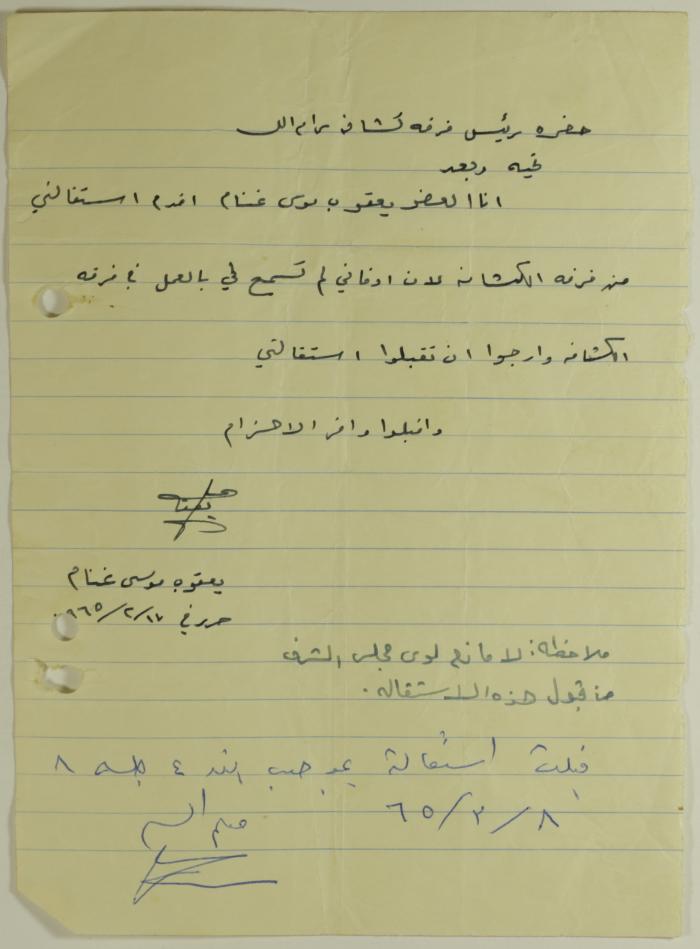 حضره رئيس فرقه كشافة رام الله
تحيه وبعد
انا العضو يعقوب موسى غنام اقدم استقالتي
من فرقه الكشافه لان اوقاتي لم تسمح لي بالعمل في فرقه
الكشافه وارجوا ان تقبلوا استقالتي
واقبلوا وافر الاحترام
يعقوب موسى غنام
حرر في ١٧/٢/٩٦٥
ملاحظه: لا مانع لدى مجلس الشرف
من قبول هذه الاستقاله.
قبلت استقالة بموجب البند ٤ جلسه ٨
٨/٣/٦٥